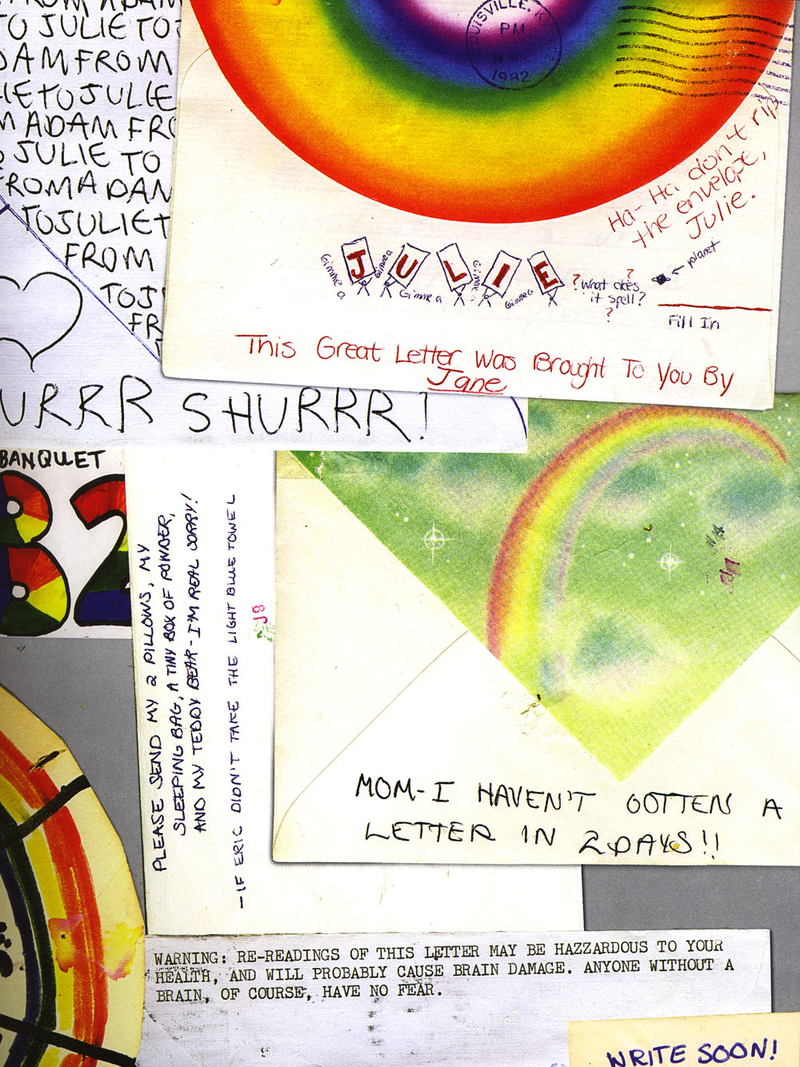 FROM ADAM
TO JULIE TO
ADAM FROM
LIE TO JULIE
M ADAM FRO
JULIE TO
FROM ADAM
TO JULIE T
FROM
TO J
FR
URRR SHURRR!
LOUISVILLE, K
PM
1992
Ha-Ha don't rip
the envelope,
Julie.
Gimme a J Gimme a U Gimme a L Gimme a I Gimme a E
? What does
it spell?
?
?
planet
Fill In
This Great Letter Was Brought To You By
Jane
BANQUET
82
PLEASE SEND MY 2 PILLOWS, MY
SLEEPING BAG, A TINY BOX OF POWDER,
AND MY TEDDY BEAR - I'M REAL SORRY!
- IF ERIC DIDN'T TAKE THE LIGHT BLUE TOWEL
MOM-I HAVEN'T GOTTEN A
LETTER IN 2 DAYS!!
WARNING: RE-READINGS OF THIS LETTER MAY BE HAZZARDOUS TO YOUR
HEALTH, AND WILL PROBABLY CAUSE BRAIN DAMAGE. ANYONE WITHOUT A
BRAIN, OF COURSE, HAVE NO FEAR.
WRITE SOON!